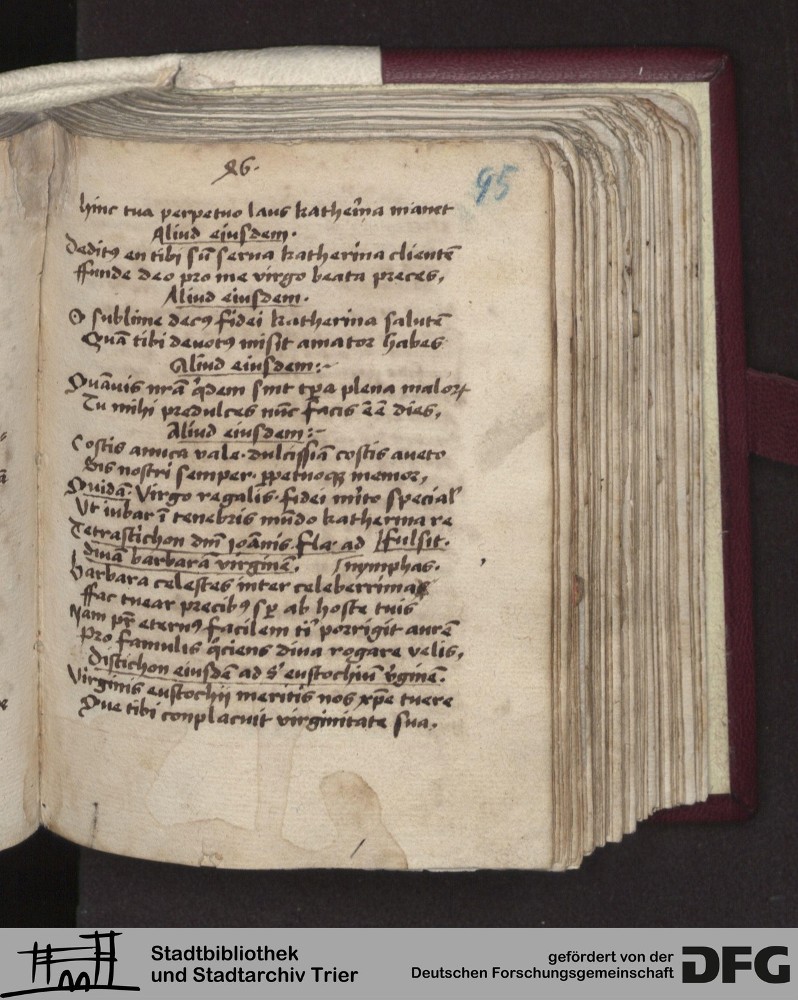 96.
95
hinc tua perpetuo laus katherina manet
Aliud eiusdem.
Deditꝯ en tibi sū serua katherina clientē
ffunde deo pro me virgo beata preces,
Aliud eiusdem.
O sublime decꝯ fidei katherina salutē
Quā tibi deuotꝯ misit amator habes
Aliud eiusdem:-
Quāuis nr̄a qͥdem sint tp̄a plena malorꝝ
Tu mihi predulces nūc facis eē dies,
Aliud eiusdem:-
Costis amica vale. dulcissīa costis aueto
Sis nostri semper. ꝑpetuoqꝫ memor,
Quidā. Virgo regalis. fidei mͥto special'
Vt iubar ī tenebris mūdo katherina re
Tetrastichon dnī ioānis. fla: ad [fulsit.
diuā barbarā virginē. [nymphas.
Barbara celestes inter celeberrima
ffac tuear precibꝯ sꝑ ab hoste tuis
Nam pr̄ eternꝯ facilem tͥ porrigit aurē
Pro famulis qͥciens diua rogare velis,
Distichon eiusdē ad S' eustochiū v̓ginē.
Virginis eustochij meritis nos xp̄e tuere
Que tibi conplacuit virginitate sua.
Stadtbibliothek
und Stadtarchiv Trier
gefördert von der
Deutschen Forschungsgemeinschaft
DFG